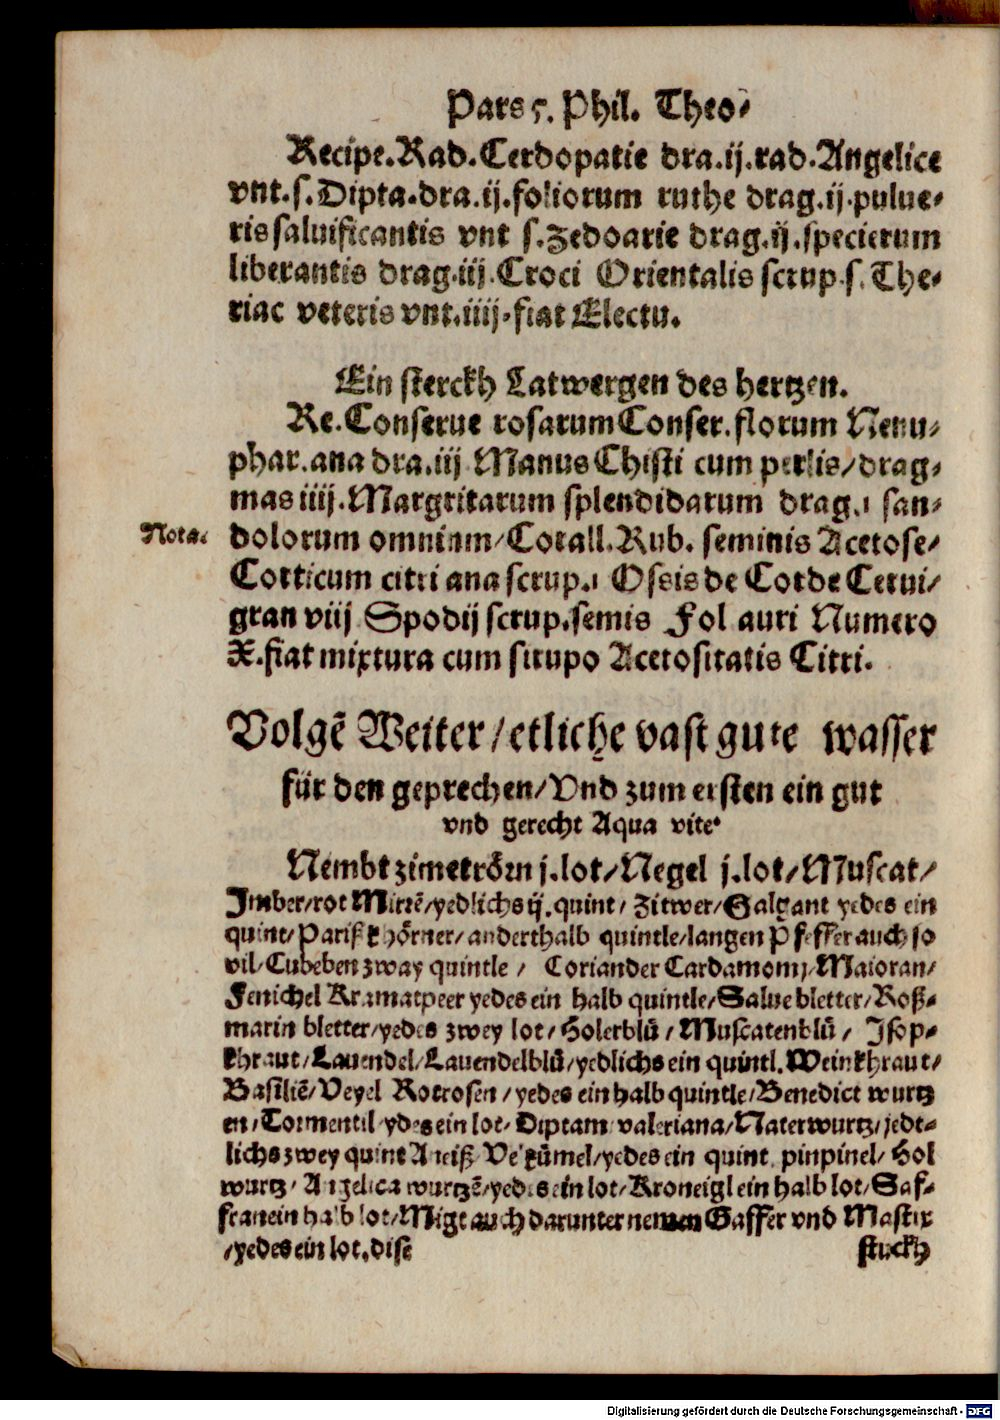 Pars 5. Phil. Theo-
Recipe. Rad. Cerdopatie dra.ij.rad. Angelice
vnt.s. Dipta.dra.ij.foliorum ruthe drag.ij.pulue-
ris saluificantis vnt s. zedoarie drag.ij.specierum
liberantis drag.iij. Croci Orientalis scrup.s. The-
riac veteris vnt.iiij.fiat Electu.
Ein sterckh Latwergen des hertzen.
Re. Conserue rosarum Conser. florum Nenu-
phar. ana dra.iij Manus Christi cum perlis/ drag-
mas iiij. Margritarum splendidarum drag.i san-
Nota. dolorum omnium/ Corall. Rub. seminis Acetose/
Corticum citri ana scrup.i Ossis de Corde Cerui/
gran viij Spodij scrup.semis Fol auri Numero
X. fiat mixtura cum sirupo Acetositatis Citri.
Volgẽ Weiter/ etliche vast gute wasser
für den geprechen/ Vnd zum ersten ein gut
vnd gerecht Aqua vite.
Nembt zimetrörn j.lot/ Negel j.lot/ Muscat/
Imber/ rot Mirrẽ/ yedlichs ij.quint/ Zitwer/ Galgant yedes ein
quint/ Pariß khörner/ anderthalb quintle/ langen Pfeffer auch so
vil/ Cubeben zway quintle/ Coriander Cardamomj/ Maioran/
Fenichel Kramatpeer yedes ein halb quintle/ Salue bletter/ Roß-
marin bletter/ yedes zwey lot/ Holerblü/ Muscatenblü/ Isop-
khraut/ Lauendel/ Lauendelblü/ yedlichs ein quintl. Weinkhraut/
Basiliẽ/ Veyel Rotrosen/ yedes ein halb quintle/ Benedict wurtz
en/ Tormentil ydes ein lot/ Diptam valeriana/ Naterwurtz/ jedt-
lichs zwey quint Aneiß Vekümel/ yedes ein quint. pinpinel/ Hol
wurtz/ Angelica wurtzẽ/ yedes ein lot/ Kroneigl ein halb lot/ Saf-
fran ein halb lot/ Migt auch darunter nemen Gaffer vnd Mastix
/yedes ein lot, dise stuckh
Digitalisierung gefördert durch die Deutsche Forschungsgemeinschaft - DFG